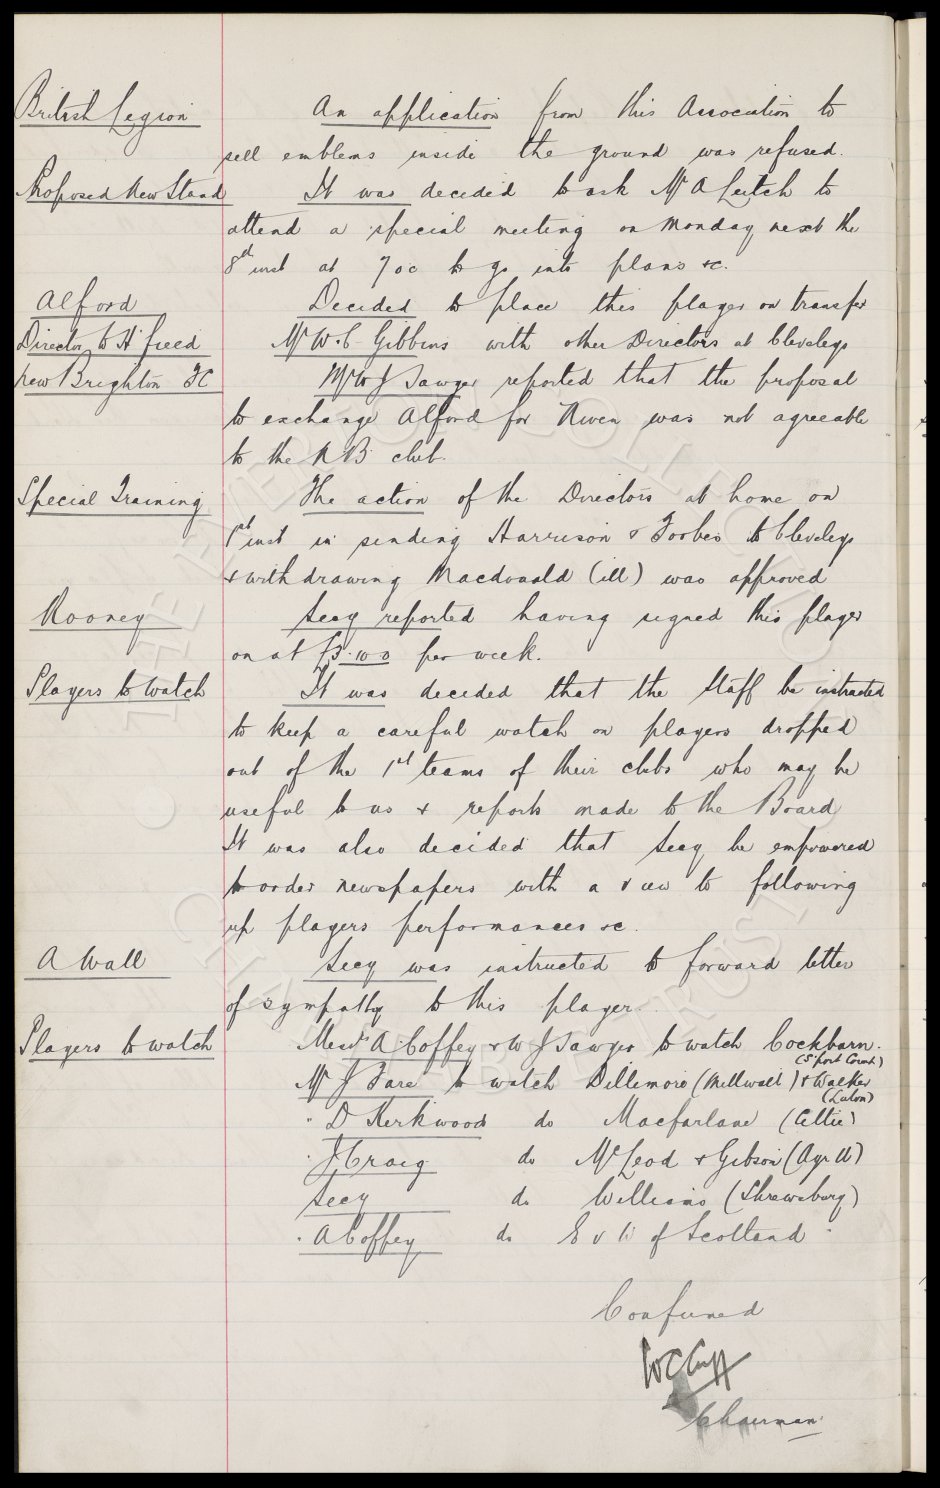 British Legion An application from this Association to
sell emblems inside the ground was refused.
Proposed New Stand It was decided to ask Mr A Leitch to
attend a special meeting on Monday next the
8th inst at 7 oc to go into plans &c.
Alford Decided to place this player on transfer
Director to H'field Mr W.C. Gibbins with other Directors at Cleveleys
New Brighton FC Mr W J Sawyer reported that the proposal
to exchange Alford for Niven was not agreeable
to the N B club.
Special Training The action of the Directors at home on
1st inst in sending Harrison & Forbes to Cleveleys
& withdrawing Macdonald (ill) was approved
Rooney Secy reported having signed this player
on at £3.10.0 per week.
Players to watch It was decided that the staff be instructed
to keep a careful watch on players dropped
out of the 1st teams of their clubs who may be
useful to us & reports made to the Board
It was also decided that Secy be empowered
to order newspapers with a view to following
up players performances &c.
A Wall Secy was instructed to forward letter
of sympathy to this player.
Players to watch Messrs A. Coffey & W J Sawyer to watch Cockburn.
(S'port Count)
Mr J Fare to watch Dillimore (Millwall) & Walker
(Luton)
" D Kirkwood do Macfarlane (Celtic)
" J Craig do McLeod & Gibson (Ayr U)
Secy do Williams (Shrewsbury)
" A Coffey do E v W of Scotland "
Confirmed
W C Cuff
Chairman
THE EVERTON COLLECTION
CHARITABLE TRUST